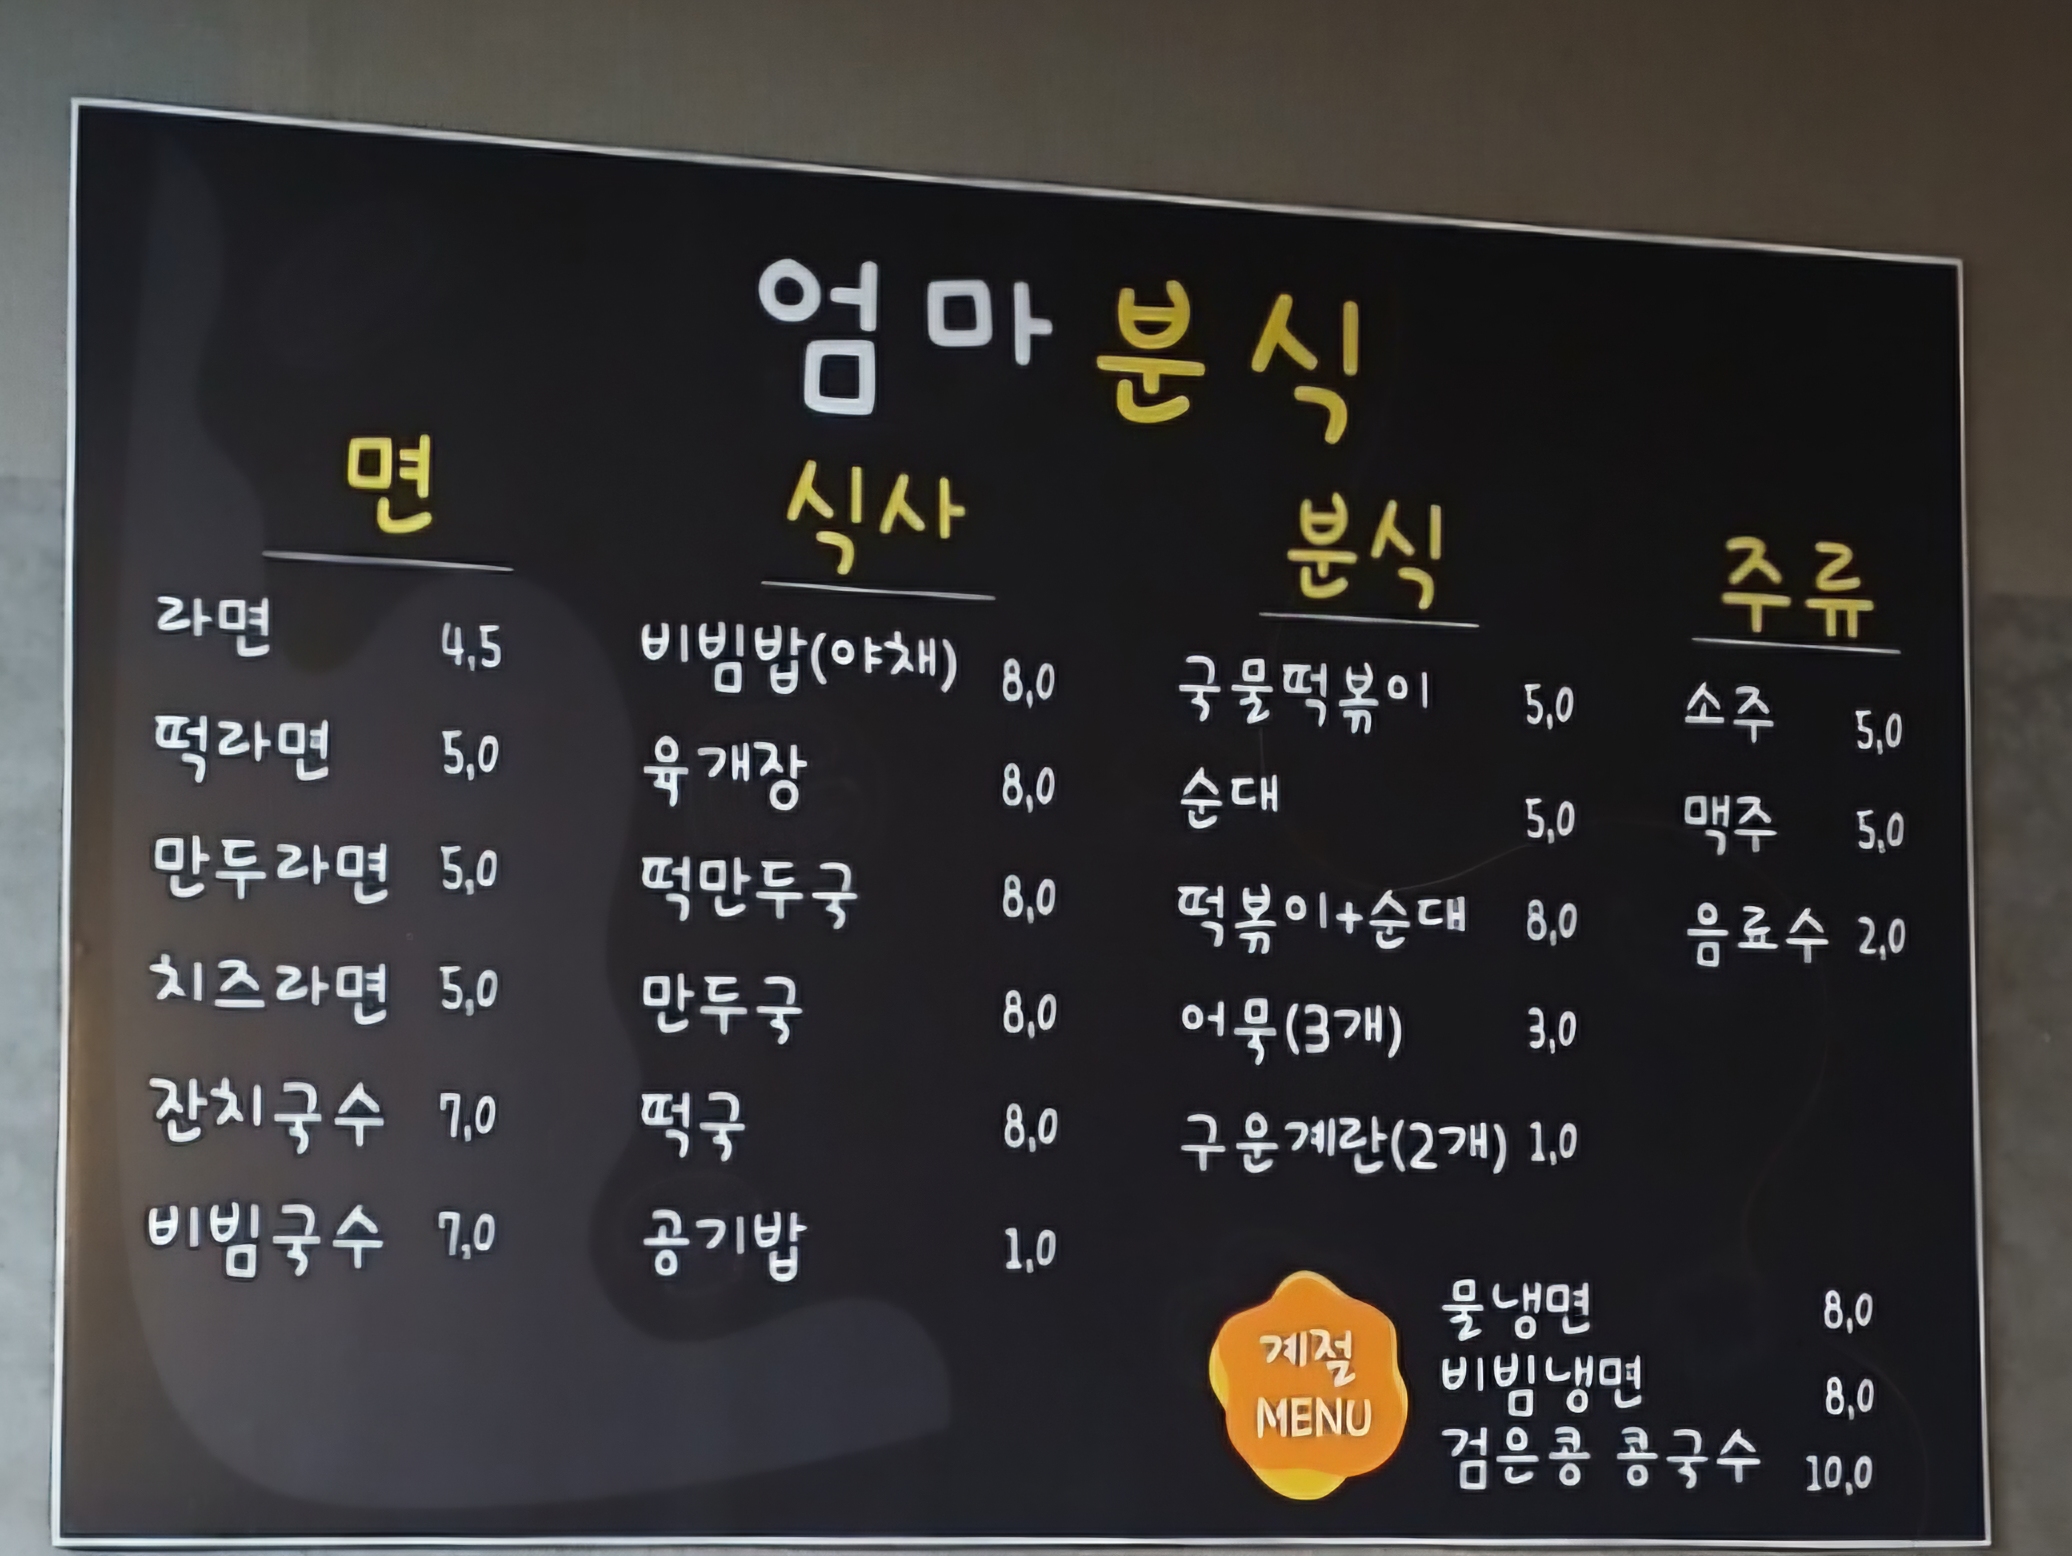 엄마분식
면
라면 4,5
떡라면 5,0
만두라면 5,0
치즈라면 5,0
잔치국수 7,0
비빔국수 7,0
식사
비빔밥(야채) 8,0
육개장 8,0
떡만두국 8,0
만두국 8,0
떡국 8,0
공기밥 1,0
분식
국물떡볶이 5,0
순대 5,0
떡볶이+순대 8,0
어묵(3개) 3,0
구운계란(2개) 1,0
주류
소주 5,0
맥주 5,0
음료수 2,0
계절
MENU
물냉면 8,0
비빔냉면 8,0
검은콩 콩국수 10,0